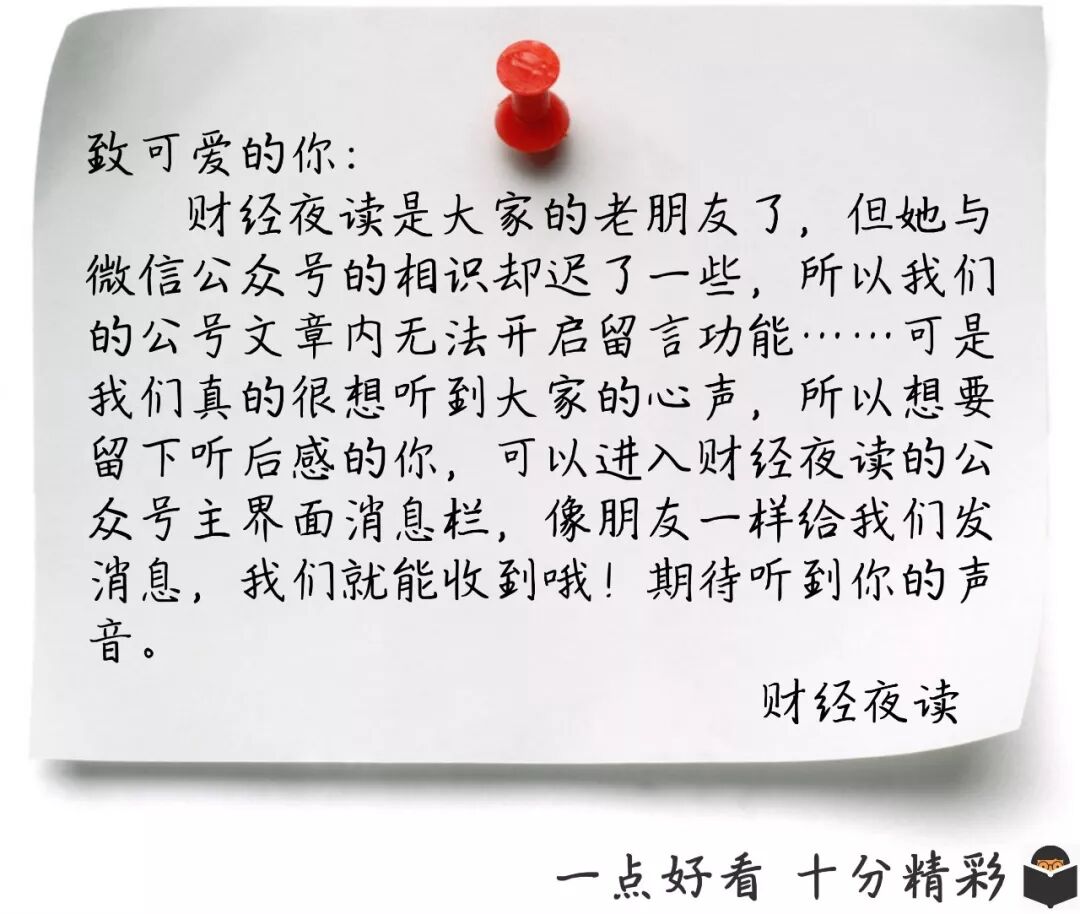 致可爱的你：
财经夜读是大家的老朋友了，但她与
微信公众号的相识却迟了一些，所以我们
的公号文章内无法开启留言功能……可是
我们真的很想听到大家的心声，所以想要
留下听后感的你，可以进入财经夜读的公
众号主界面消息栏，像朋友一样给我们发
消息，我们就能收到哦！期待听到你的声
音。
财经夜读
一点好看 十分精彩